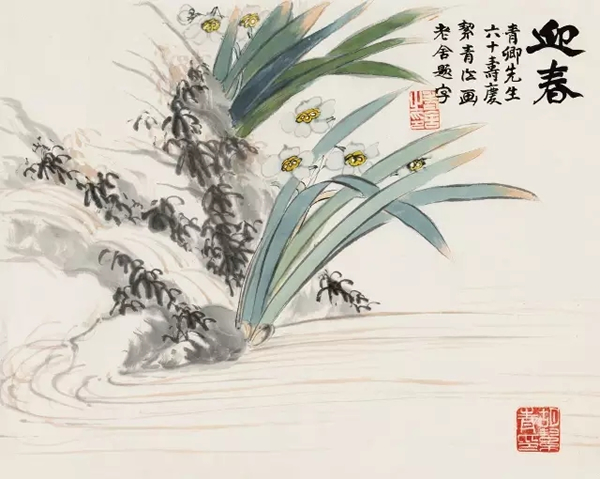 迎春
青卿先生
六十壽慶
絜青作画
老舍題字